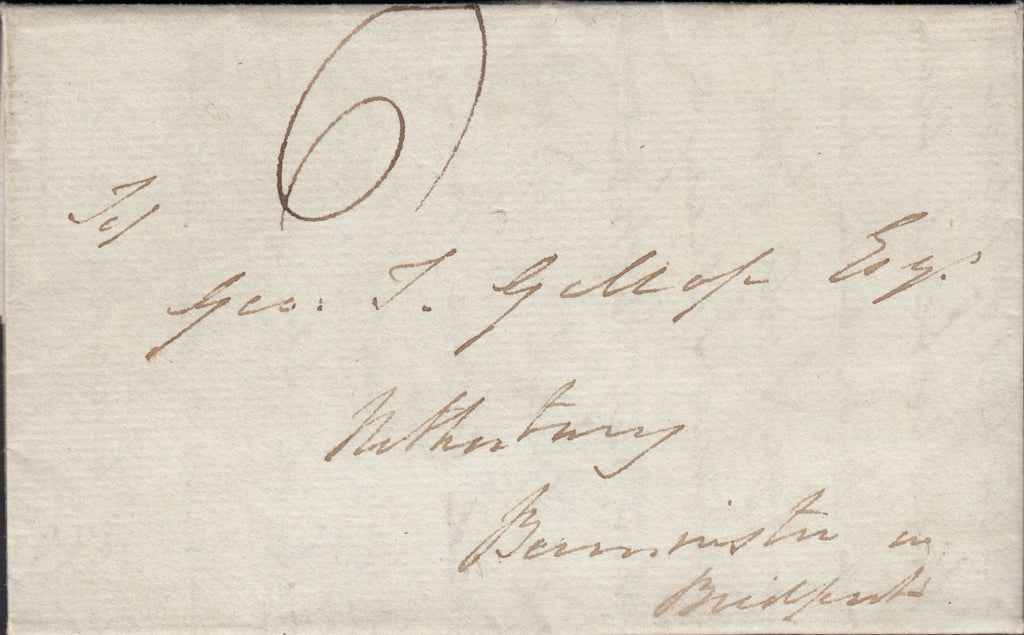 6
To/
Geo: T. Gollop Esqr.
Netherbury
Beauminster
Bridport